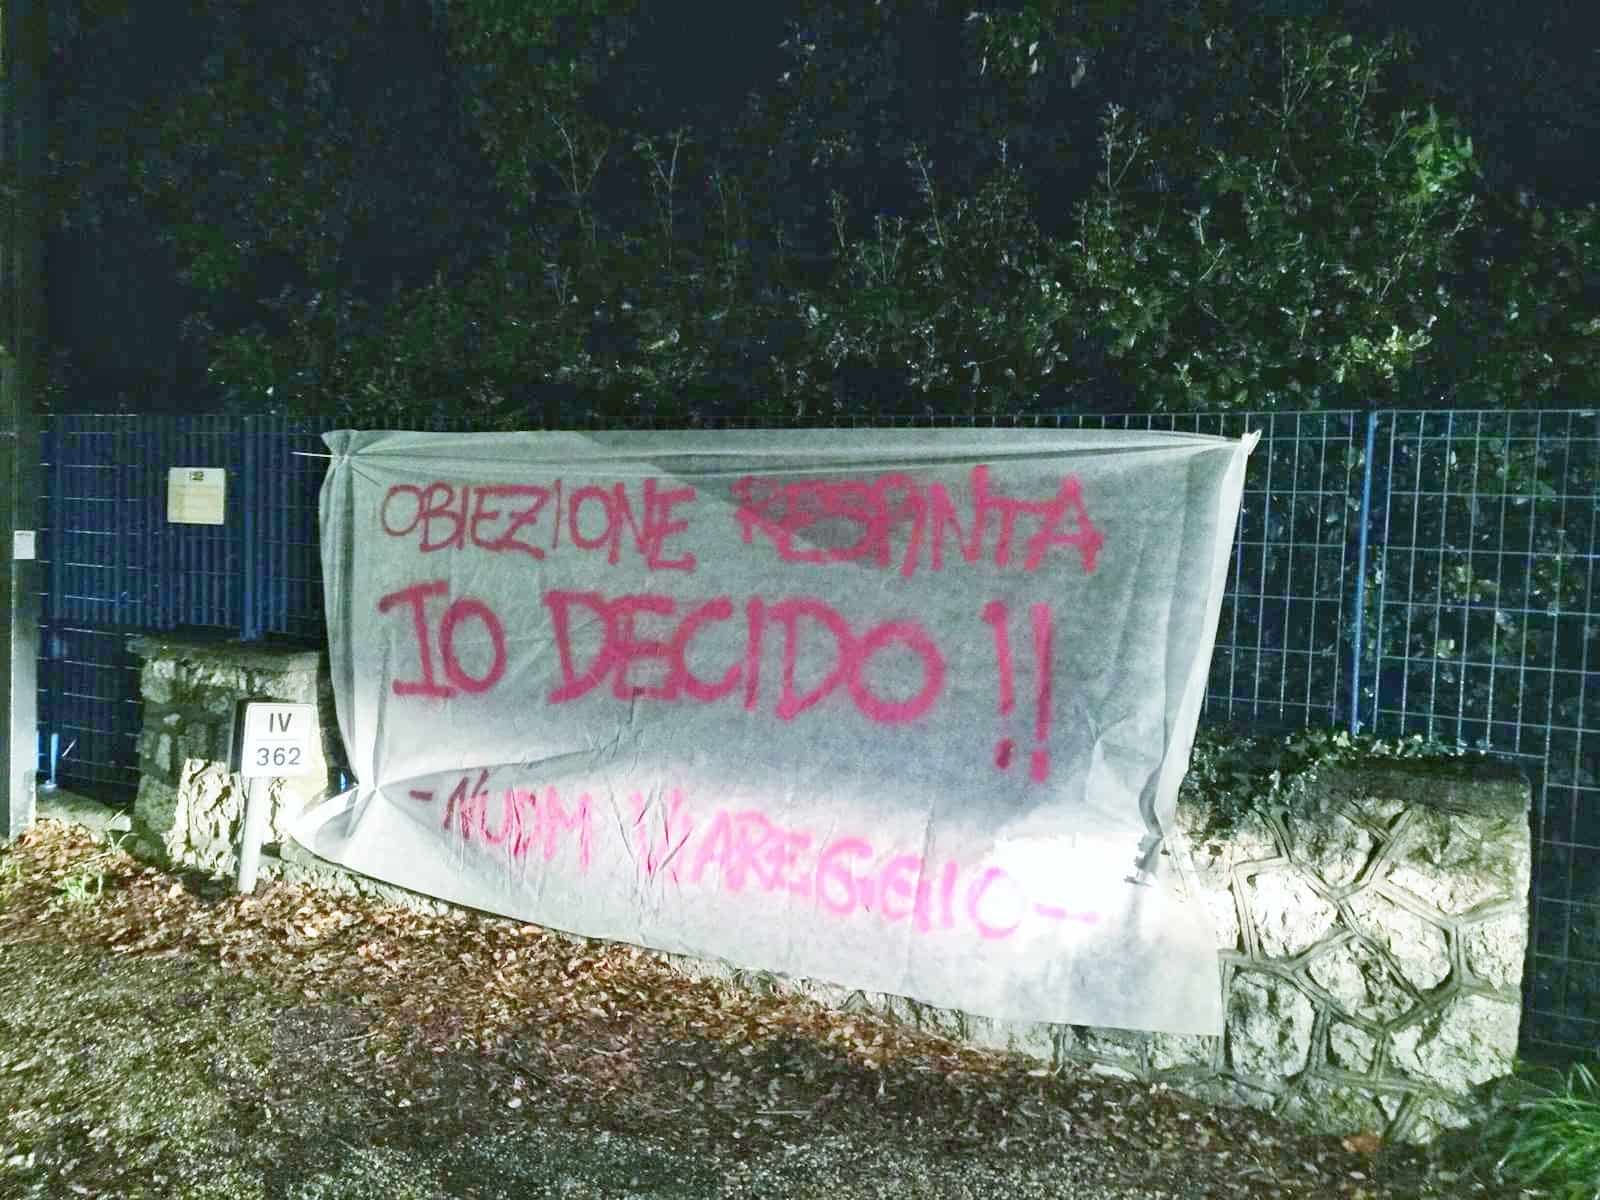 OBIEZIONE RESPINTA
IO DECIDO !!
- NUDM VIAREGGIO -
IV
362